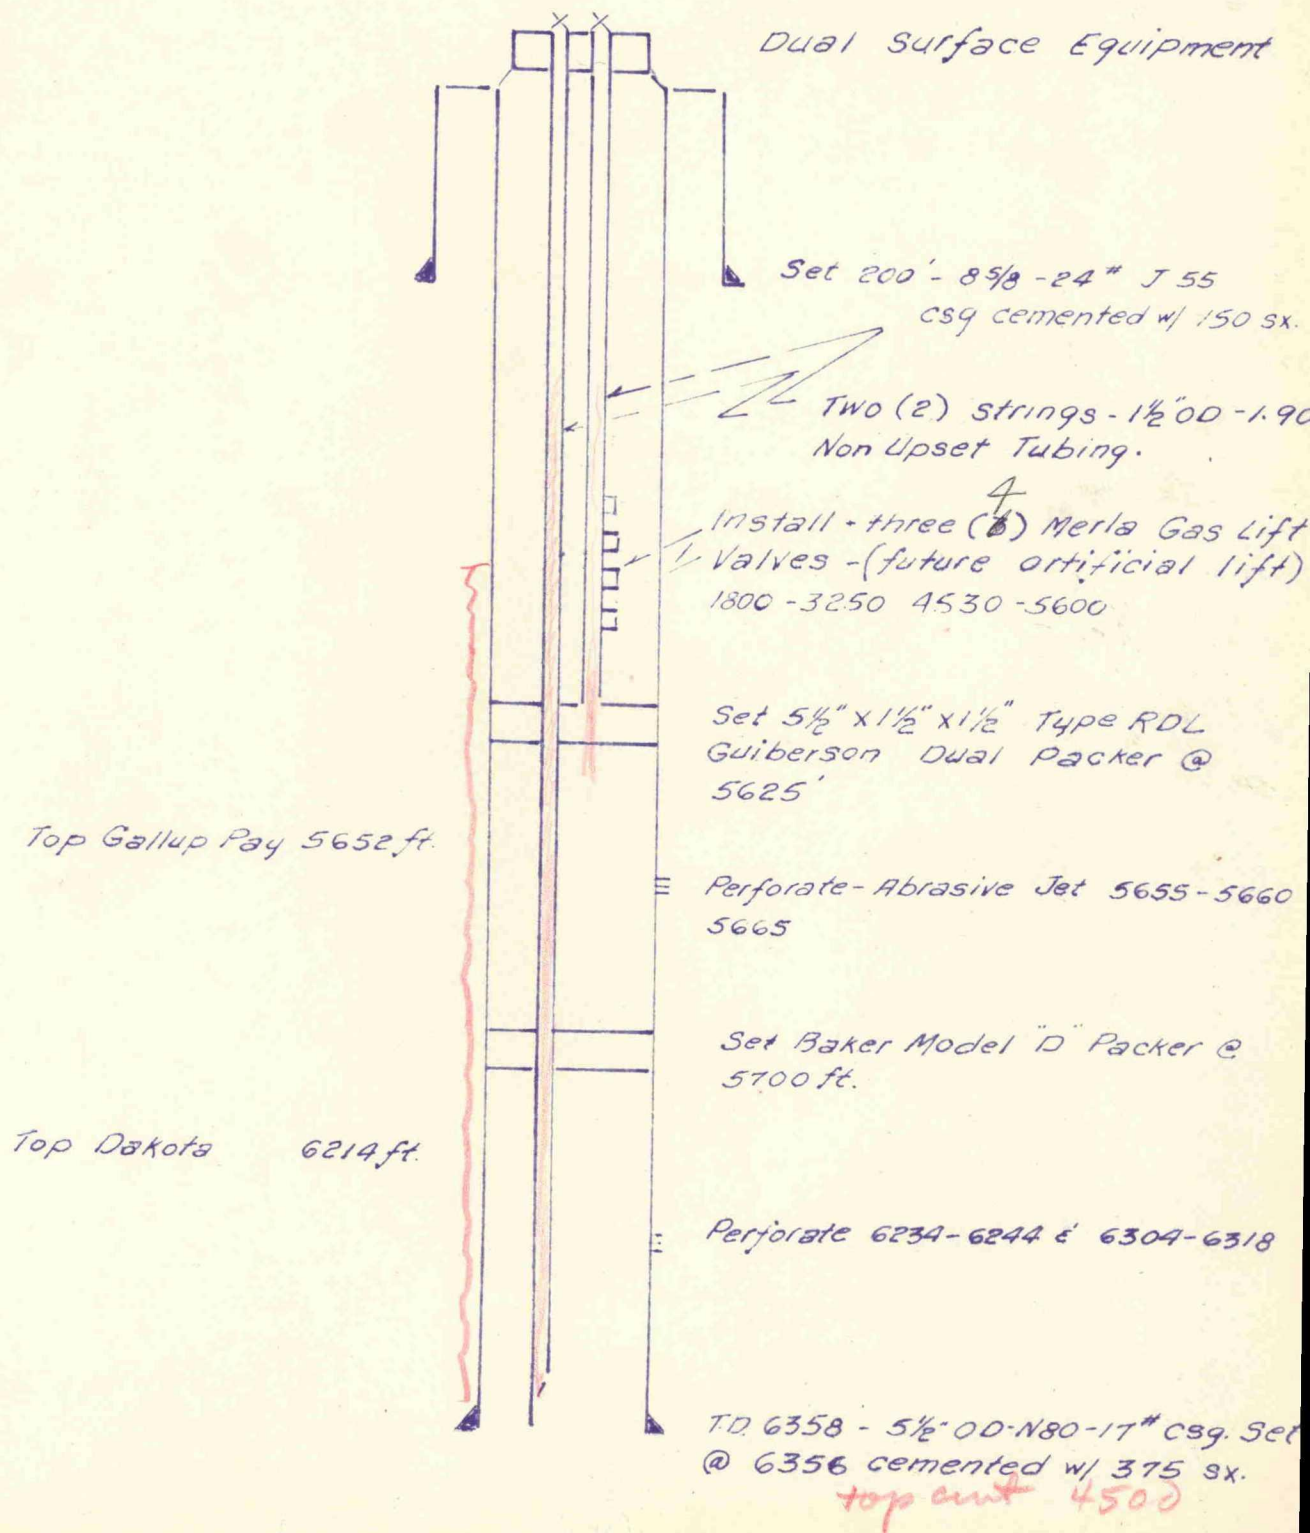 Dual Surface Equipment
Set 200' - 8 5/8 - 24# J 55
csg cemented w/ 150 sx.
Two (2) strings - 1½" OD - 1.90
Non Upset Tubing.
4
Install - three ( ) Merla Gas Lift
Valves - (future artificial lift)
1800 - 3250 4530 - 5600
Set 5½" x 1½" x 1½" Type RDL
Guiberson Dual Packer @
5625'
Top Gallup Pay 5652 ft.
Perforate - Abrasive Jet 5655 - 5660
5665
Set Baker Model "D" Packer @
5700 ft.
Top Dakota 6214 ft.
Perforate 6234 - 6244 & 6304 - 6318
T.D. 6358 - 5½" OD-N80-17# csg. Set
@ 6356 cemented w/ 375 sx.
top cmt 4500